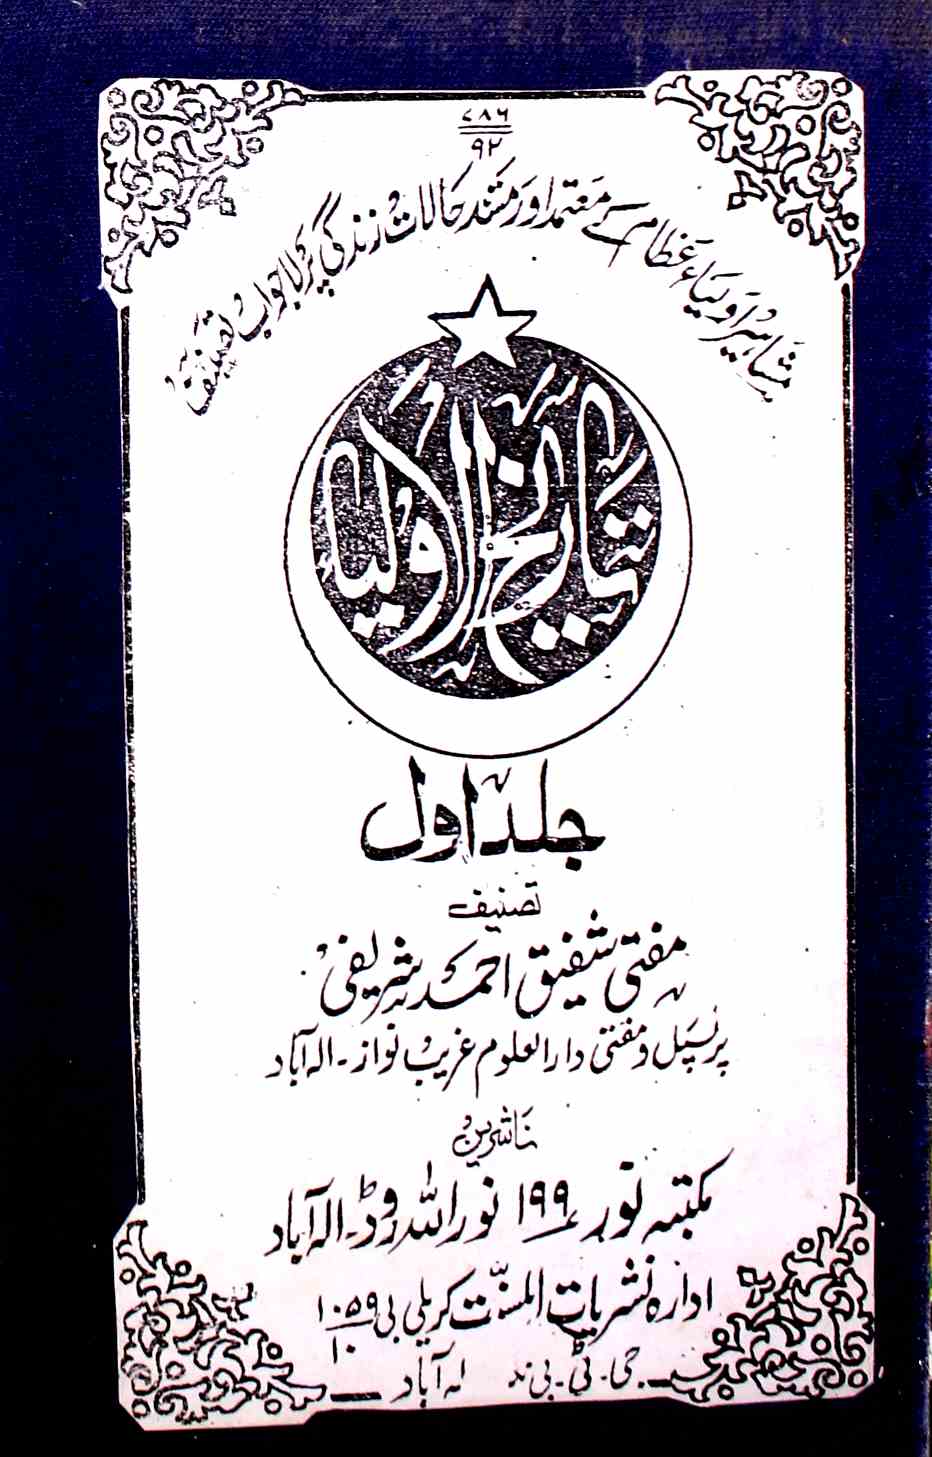 ۷۸۶
۹۲
مشاہیر اولیاء عظام کے معتمد اور مستند حالات زندگی پر لاجواب تصنیف
تاریخ الاولیاء
جلد اول
تصنیف
مفتی شفیق احمد شریفی
پرنسپل و مفتی دارالعلوم غریب نواز۔ الہ آباد
ناشرین
مکتبہ نور ۱۹۹ نور اللہ روڈ۔ الہ آباد
ادارہ نشریات اہلسنّت کریلی بی ۱۰۵۹
۱۰
جی۔ ٹی۔ بی نگر الہ آباد